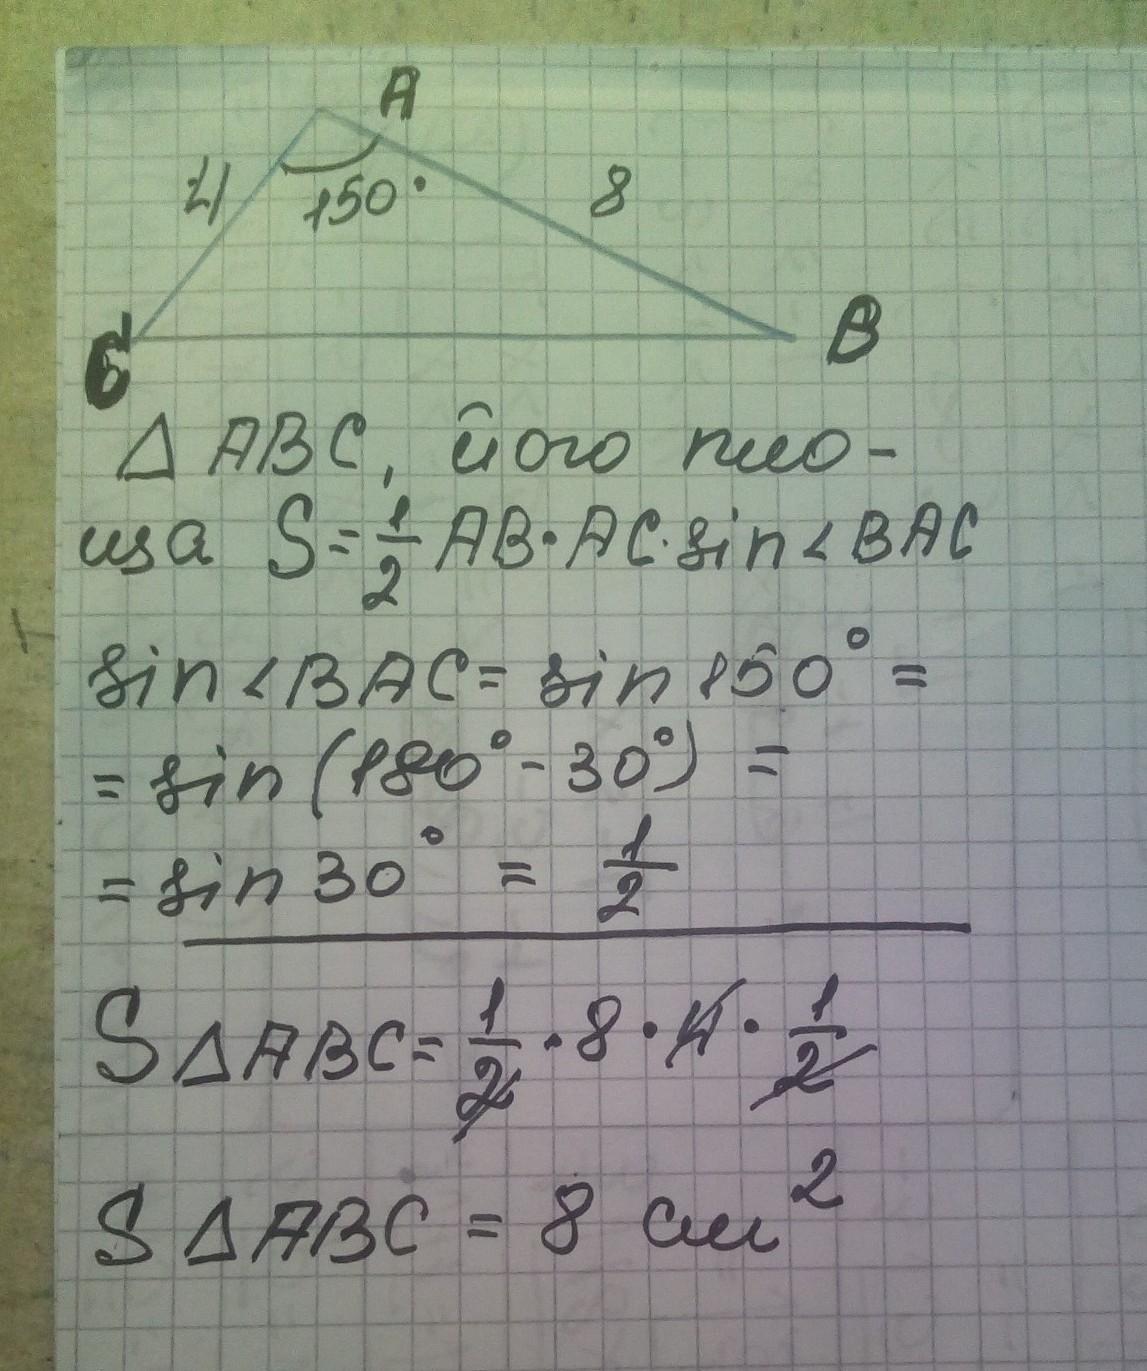 A
4
150°
8
C
B
Δ ABC, його пло-
ща S=1/2 AB·AC·sin<BAC
sin<BAC= sin 150° =
= sin (180° - 30°) =
= sin 30° = 1/2
S Δ ABC= 1/2 · 8 · 4 · 1/2
S Δ ABC = 8 см²